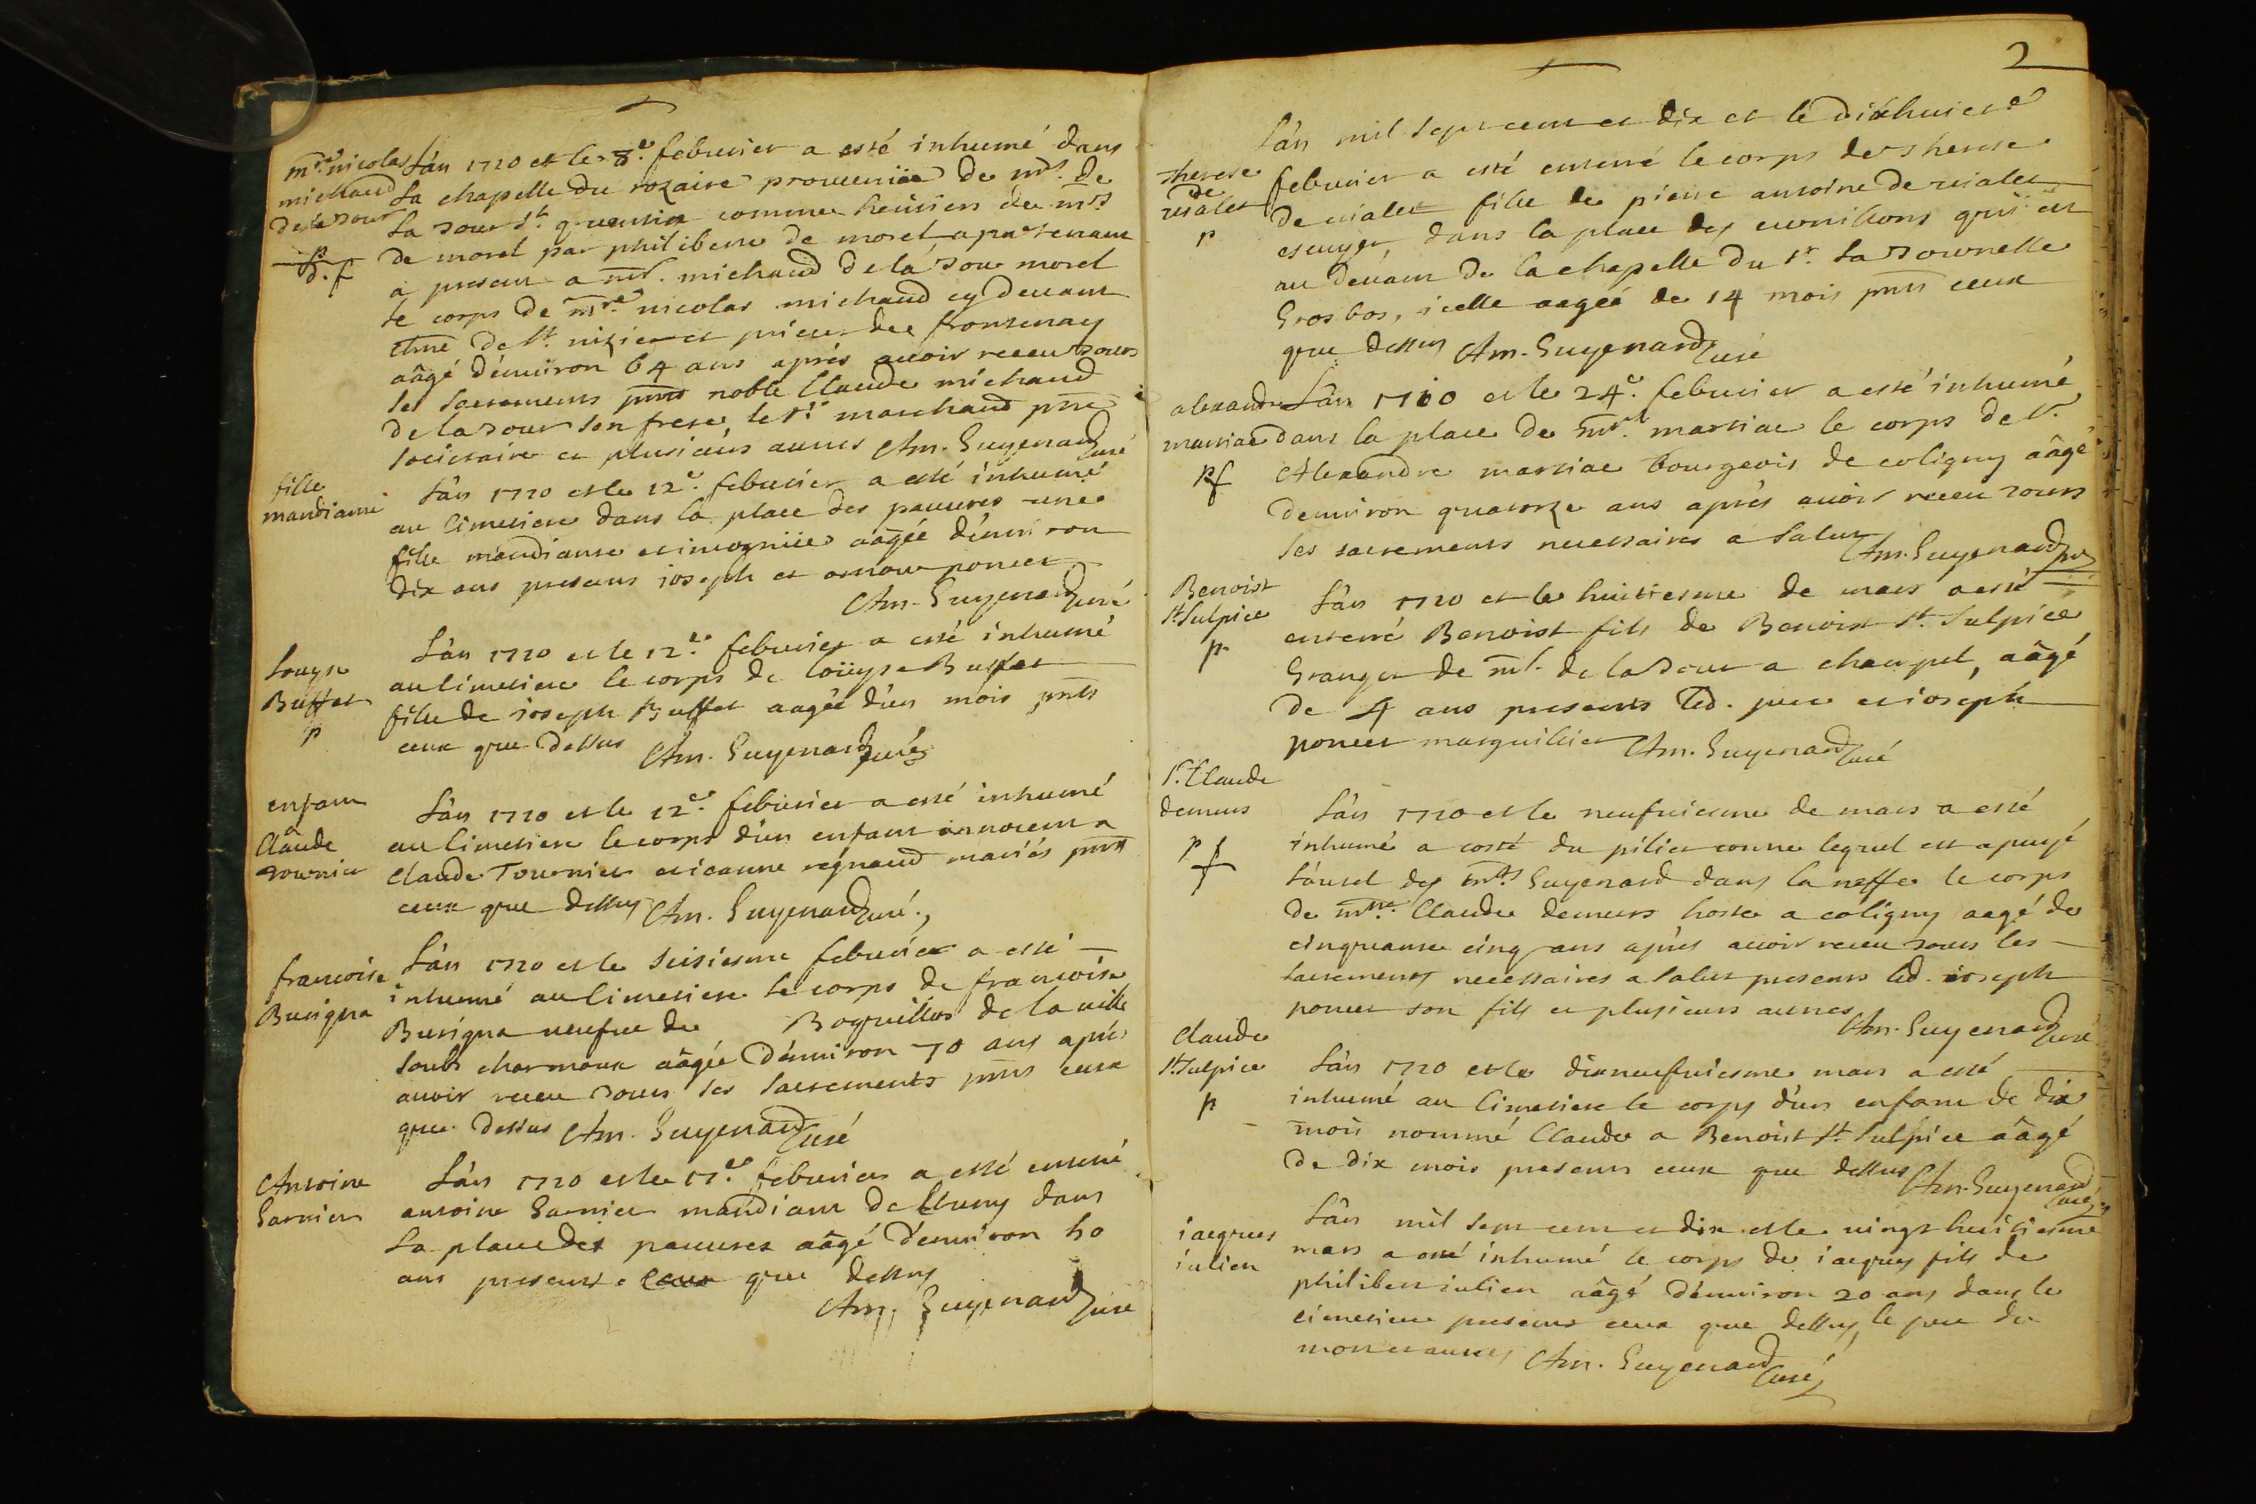 mre nicolas
michaud
de la Tour
p
d. f
L'an 1710 et le 8e. feburier a esté inhumé dans
La chapelle du rozaire prouenüe de mrs. de
La Tour St. quentin comme heritiers de mrs
de morel par philiberte de morel apartenant
a present a mr. michaud de la Tour morel
le corps de mre. nicolas michaud cy deuant
de St. nizier et prieur de frontenay
aâgé d'enuiron 64 ans aprés auoir receu tous
les sacremens pnts noble Claude michaud
de la Tour son frere, le Sr. marchand pbre
societaire et plusieurs autres Am. Guyenard
curé
fille
mandiante
L'an 1710 et le 12e. feburier a esté inhumé
au Cimetiere dans la place des pauures une
fille mandiante et incognüe aâgée d'enuiron
dix ans presents ioseph et poncet
Am. Guyenard curé
Louyse
Buffet
p
L'an 1710 et le 12e. feburier a esté inhumé
au Cimetiere le corps de loüyse Buffet
fille de ioseph Buffet aagée d'un mois pnts
ceux que dessus Am. Guyenard curé
enfant
a
Claude
Tournier
L'an 1710 et le 12e. feburier a esté inhumé
au Cimetiere le corps d'un enfant innocent a
Claude Tournier et ieanne regnaud mariés pnts
ceux que dessus Am. Guyenard curé.
francoise
Burigna
L'an 1710 et le seisiesme feburier a esté
inhumé au Cimetiere le corps de francoise
Burigna veufue de Boquillos de la ville
soubs charmoux aâgée d'enuiron 70 ans aprés
auoir receu tous les sacrements pnts ceux
que dessus Am. Guyenard curé
Antoine
Garnier
L'an 1710 et le 17e. feburier a esté enterré
antoine Garnier mandiant de Cluny dans
La place des pauures aâgé d'enuiron 50
ans presents ceux que dessus
Am. Guyenard curé
2
therese
de
vialet
p
L'an mil sept cent et dix et le dixhuict e
feburier a esté enterré le corps de therese
de vialet fille de pierre antoine de vialet
escuyer dans la place des qui est
au deuant de la chapelle du Sr. La Tournelle
Grosbos, icelle aagée de 14 mois pnts ceux
que dessus Am. Guyenard curé
alexandre
marsiac
pf
L'an 1710 et le 24e. feburier a esté inhumé
dans la place de mr. marsiac le corps de Sr.
Alexandre marsiac bourgeois de coligny aâgé
denuiron quatorze ans aprés auoir receu tous
les sacrements necessaires a salut
Am. Guyenard
Benoist
St. Sulpice
p.
L'an 1710 et le huitiesme de mars a esté
enterré Benoist fils de Benoist St. Sulpice
Granger de mr. de la Tour a chaupet, aâgé
de 4 ans presents led. pere et ioseph
poncet marguillier Am. Guyenard curé
Sr. Claude
demeurs
p f
L'an 1710 et le neufuiesme de mars a esté
inhumé a costé du pilier contre lequel est apuyé
l'autel des mrs Guyenard dans la neffe le corps
de mre. Claude demeurs hoste a coligny aagé de
cinquante cinq ans aprés auoir receu tous les
sacrements necessaires a salut presents led. ioseph
poncet son fils et plusieurs autres
Am. Guyenard curé
Claude
St. Sulpice
p
L'an 1710 et le dixneufuiesme mars a esté
inhumé au Cimetiere le corps d'un enfant de dix
mois nommé Claude a Benoist St. Sulpice aâgé
de dix mois presents ceux que dessus
Am. Guyenard
curé
iacques
iulien
L'an mil sept cent et dix et le vingt huitiesme
mars a esté inhumé le corps de iacques fils de
philibert iulien aâgé d'enuiron 20 ans dans le
cimetiere presents ceux que dessus, le pere du
mort et autres Am. Guyenard curé